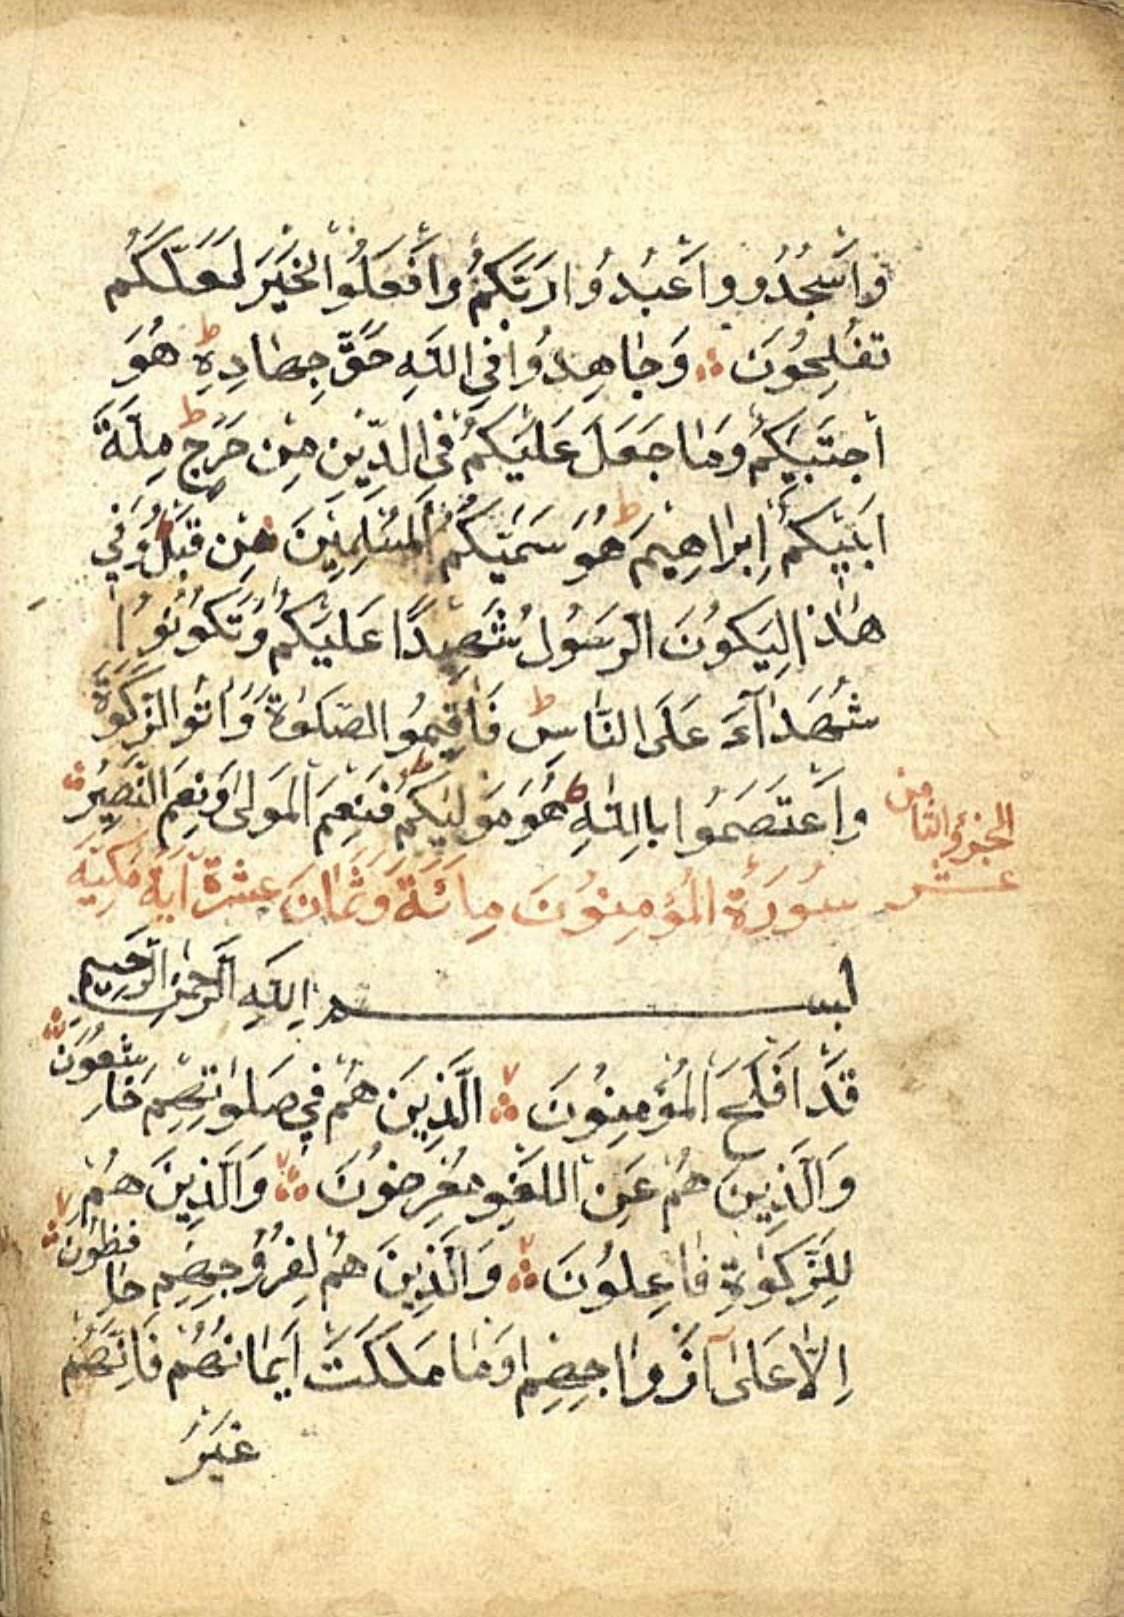 وَاسْجُدُو وَاعْبُدُوا رَبَّكُمْ وَافْعَلُوا الْخَيْرَ لَعَلَّكُمْ
تُفْلِحُونَ وَجَاهِدُوا فِي اللّٰهِ حَقَّ جِهَادِهِ ط هُوَ
اجْتَبَيكُمْ وَمَا جَعَلَ عَلَيْكُمْ فِي الدِّينِ مِنْ حَرَجٍ ط مِلَّةَ
اَبَيْكُمْ اِبْرَاهِيمَ ط هُوَ سَمَّيكُمُ الْمُسْلِمِينَ مِنْ قَبْلُ وَفِي
هٰذَا لِيَكُونَ الرَّسُولُ شَهِيدًا عَلَيْكُمْ وَتَكُونُوا
شُهَدَآءَ عَلَى النَّاسِ ط فَاَقِيمُو الصَّلٰوةَ وَاٰتُو الزَّكٰوةَ
وَاعْتَصَمُوا بِااللّٰهِ هُوَ مَوْلَيكُمْ ط فَنِعْمَ الْمَوْلٰى وَنِعْمَ النَّصِيرُ
الجزؤ الثامن
عشر
سُورَةُ الْمُؤْمِنُونَ مِائَةٌ وَثَمَانَ عَشَرَةَ اٰيَةً مَكِّيَّة
بسم اللّٰهِ الرَّحْمٰنِ الرَّحِيمِ
قَدْ اَفْلَحَ الْمُؤْمِنُونَ الَّذِينَ هُمْ فِي صَلٰوتِهِمْ خَاشِعُونَ
وَالَّذِينَ هُمْ عَنِ اللَّغْوِ مُعْرِضُونَ وَالَّذِينَ هُمْ
لِلزَّكٰوةِ فَاعِلُونَ وَالَّذِينَ هُمْ لِفُرُوجِهِمْ حَافِظُونَ
اِلَّا عَلٰى اَزْوَاجِهِمْ اَوْ مَا مَلَكَتْ اَيْمَانُهُمْ فَاِنَّهُمْ
غَيْرُ